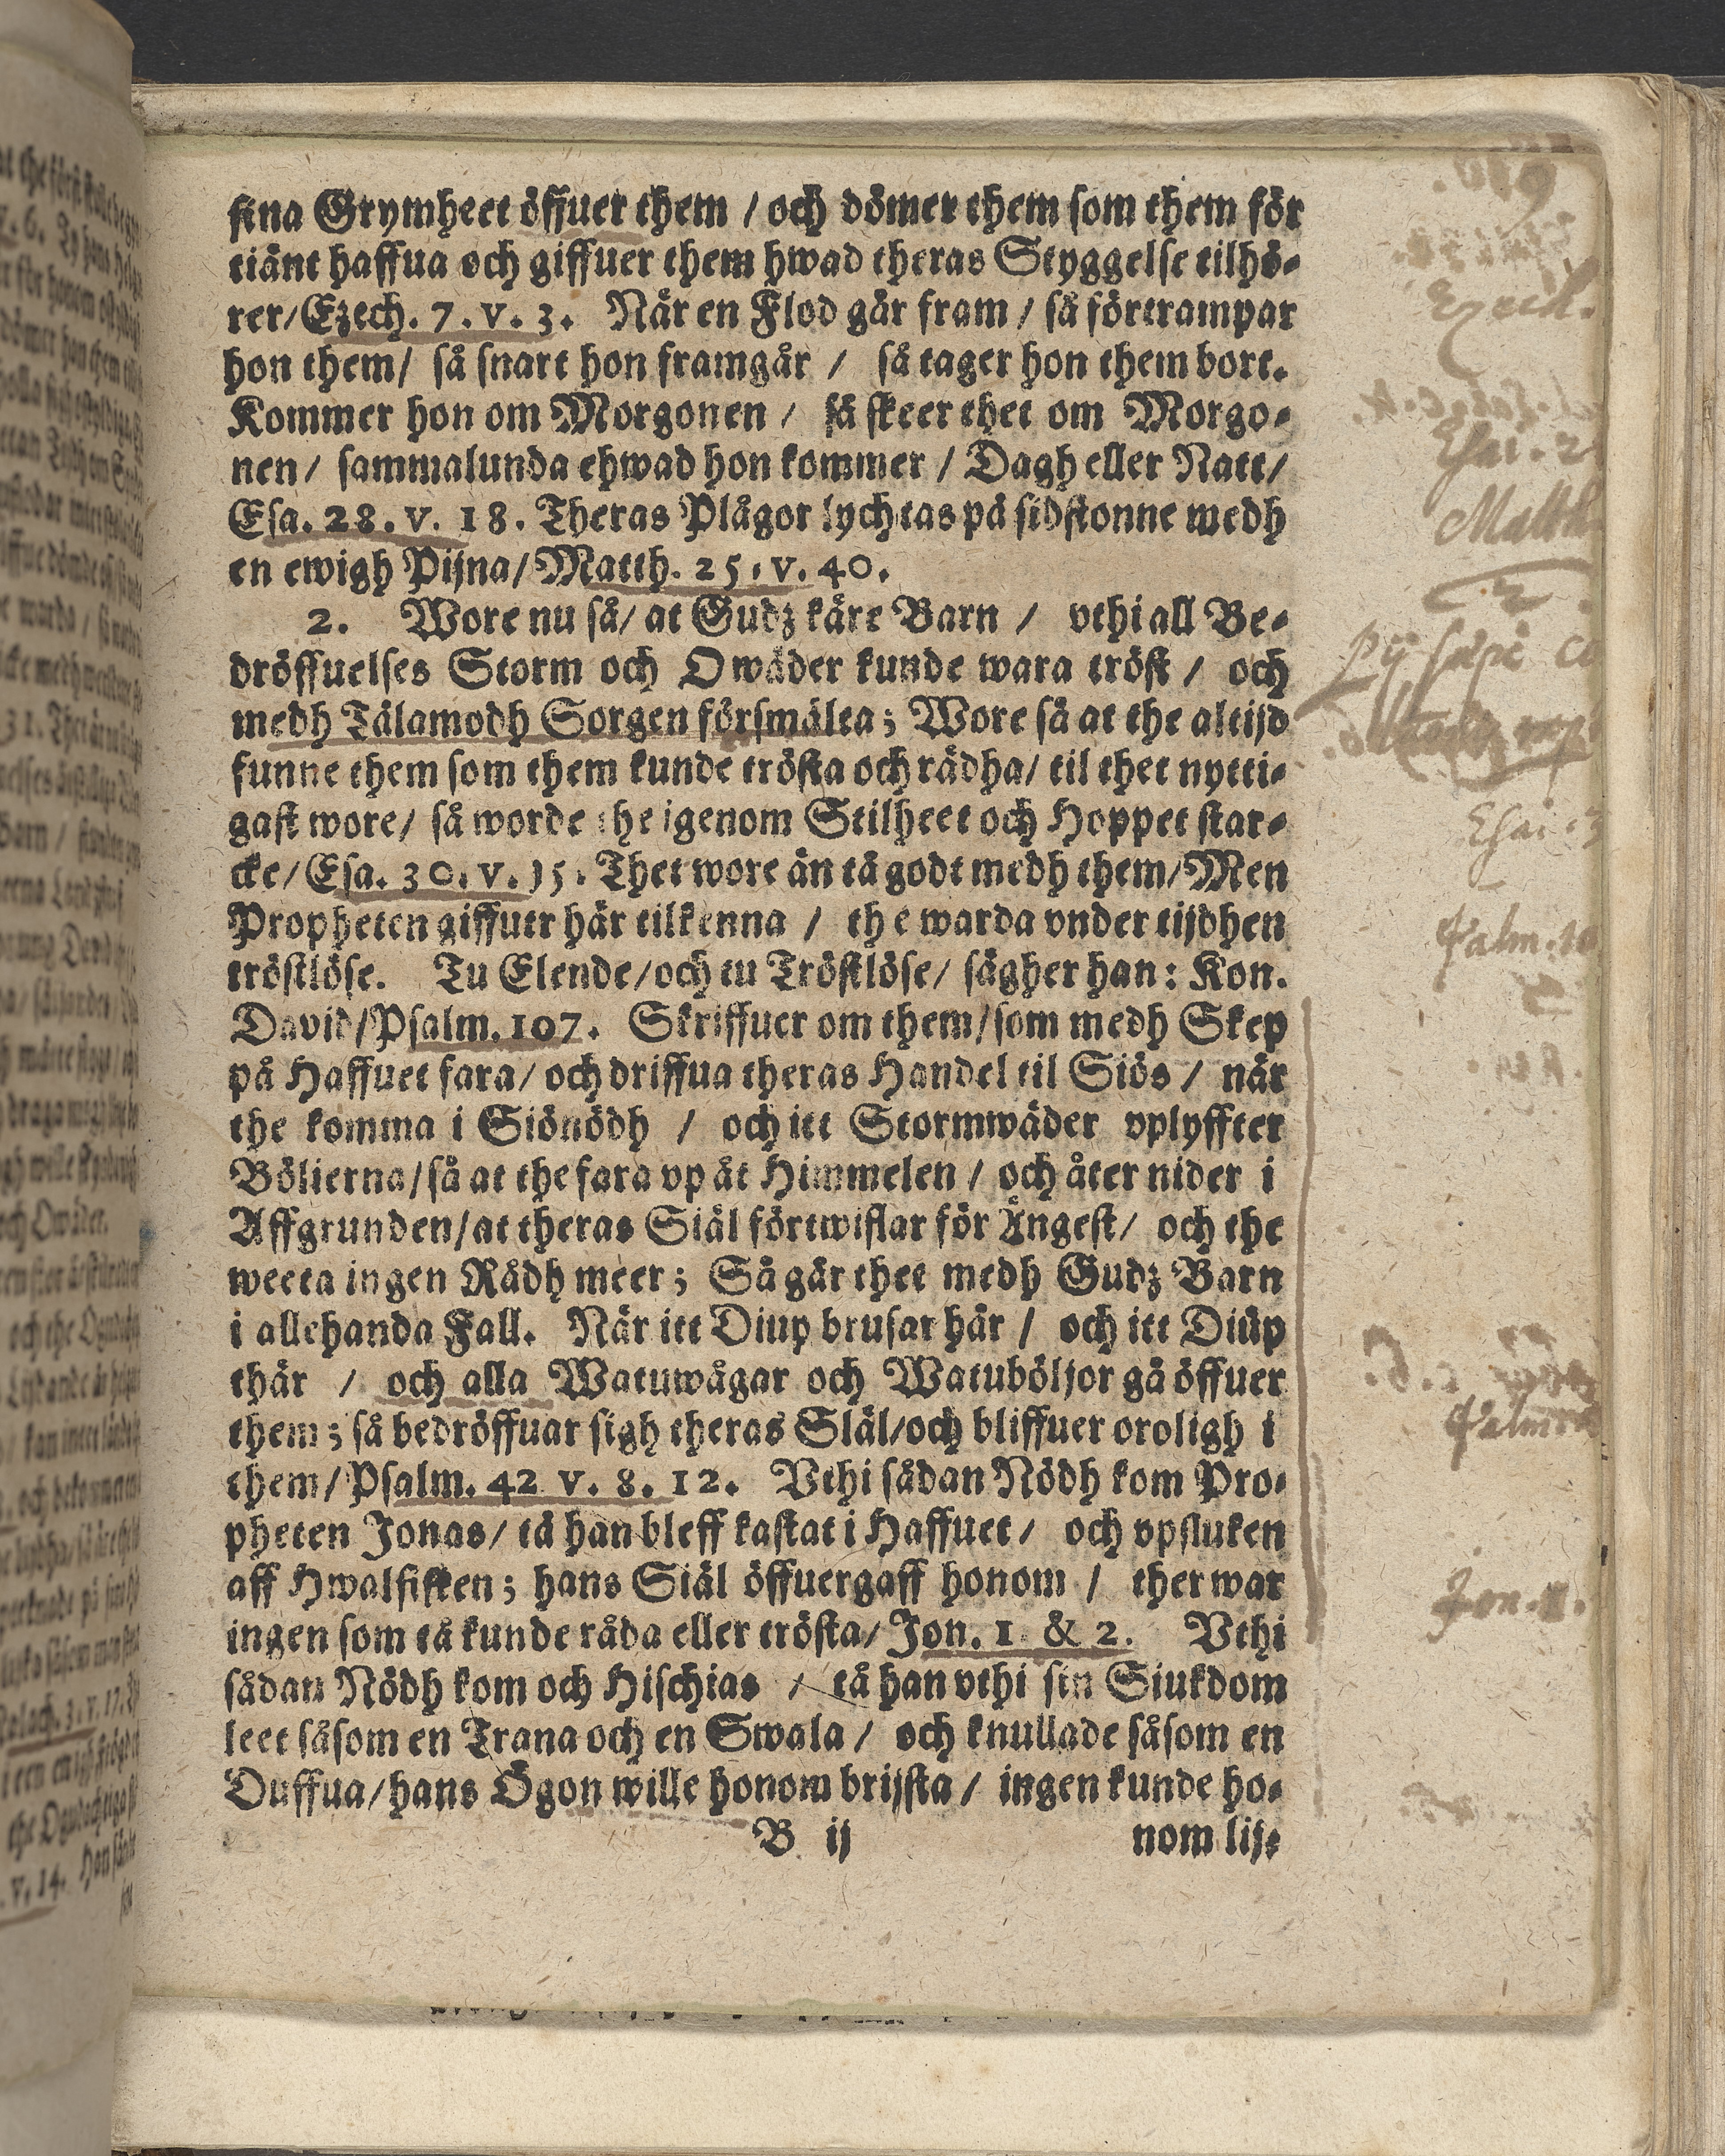 sina Grymheet öffuer them / och dömer them som them för
tiänt haffua och giffuer them hwad theras Styggelse tilhö-
rer/Ezech. 7. v. 3. När en Flod går fram / så förtrampar
hon them/ så snart hon framgår / så tager hon them bort.
Kommer hon om Morgonen / så skeer thet om Morgo-
nen/ sammalunda ehwad hon kommer / Dagh eller Natt/
Esa. 28. v. 18. Theras Plågor lychtas på sidstonne medh
en ewigh Pijna/Matth. 25. v. 40.
2. Wore nu så/ at Gudz käre Barn / vthi all Be-
dröffuelses Storm och Owäder kunde wara tröst / och
medh Tålamodh Sorgen försmälta; Wore så at the altijd
funne them som them kunde trösta och rådha/ til thet nytti-
gast wore/ så worde the igenom Stilheet och Hoppet star-
cke/Esa. 30. v. 15. Thet wore än tå godt medh them/Men
Propheten giffuer här tilkenna / the warda vnder tijdhen
tröstlöse. Tu Elende/och tu Tröstlöse/ säger han: Kon.
David/Psalm. 107. Skriffuer om them/som medh Skep
på Haffuet fara/ och driffua theras Handel til Siös / när
the komma i Siönödh / och itt Stormwäder vplyffter
Bölierna/så at the fara vp åt Himmelen / och åter nider i
Affgrunden/at theras Siäl förtwiflar för Ångest/ och the
weeta ingen Rådh meer; Så går thet medh Gudz Barn
i allehanda Fall. När itt Diup brusar här / och itt Diüp
thär / och alla Watuwågar och Watuböljor gå öffuer
them; så bedröffuar sigh theras Släl/och bliffuer oroligh i
them/Psalm. 42 v. 8. 12. Vthi sådan Nödh kom Pro-
pheten Jonas/ tå han bleff kastat i Haffuet/ och vpsluken
aff Hwalfisken; hans Siäl öffuergaff honom / ther war
ingen som tå kunde råda eller trösta/Jon. 1. & 2. Vthi
sådan Nödh kom och Hischias / tå han vthi sin Siukdom
leet såsom en Trana och en Swala / och knullade såsom en
Duffua/hans Ögon wille honom brijsta / ingen kunde ho-
B ij nom lij-
Ezech.
Esai. 2
Matth
Esai. 3
Psalm. 10
Psalm
Jon. 1.